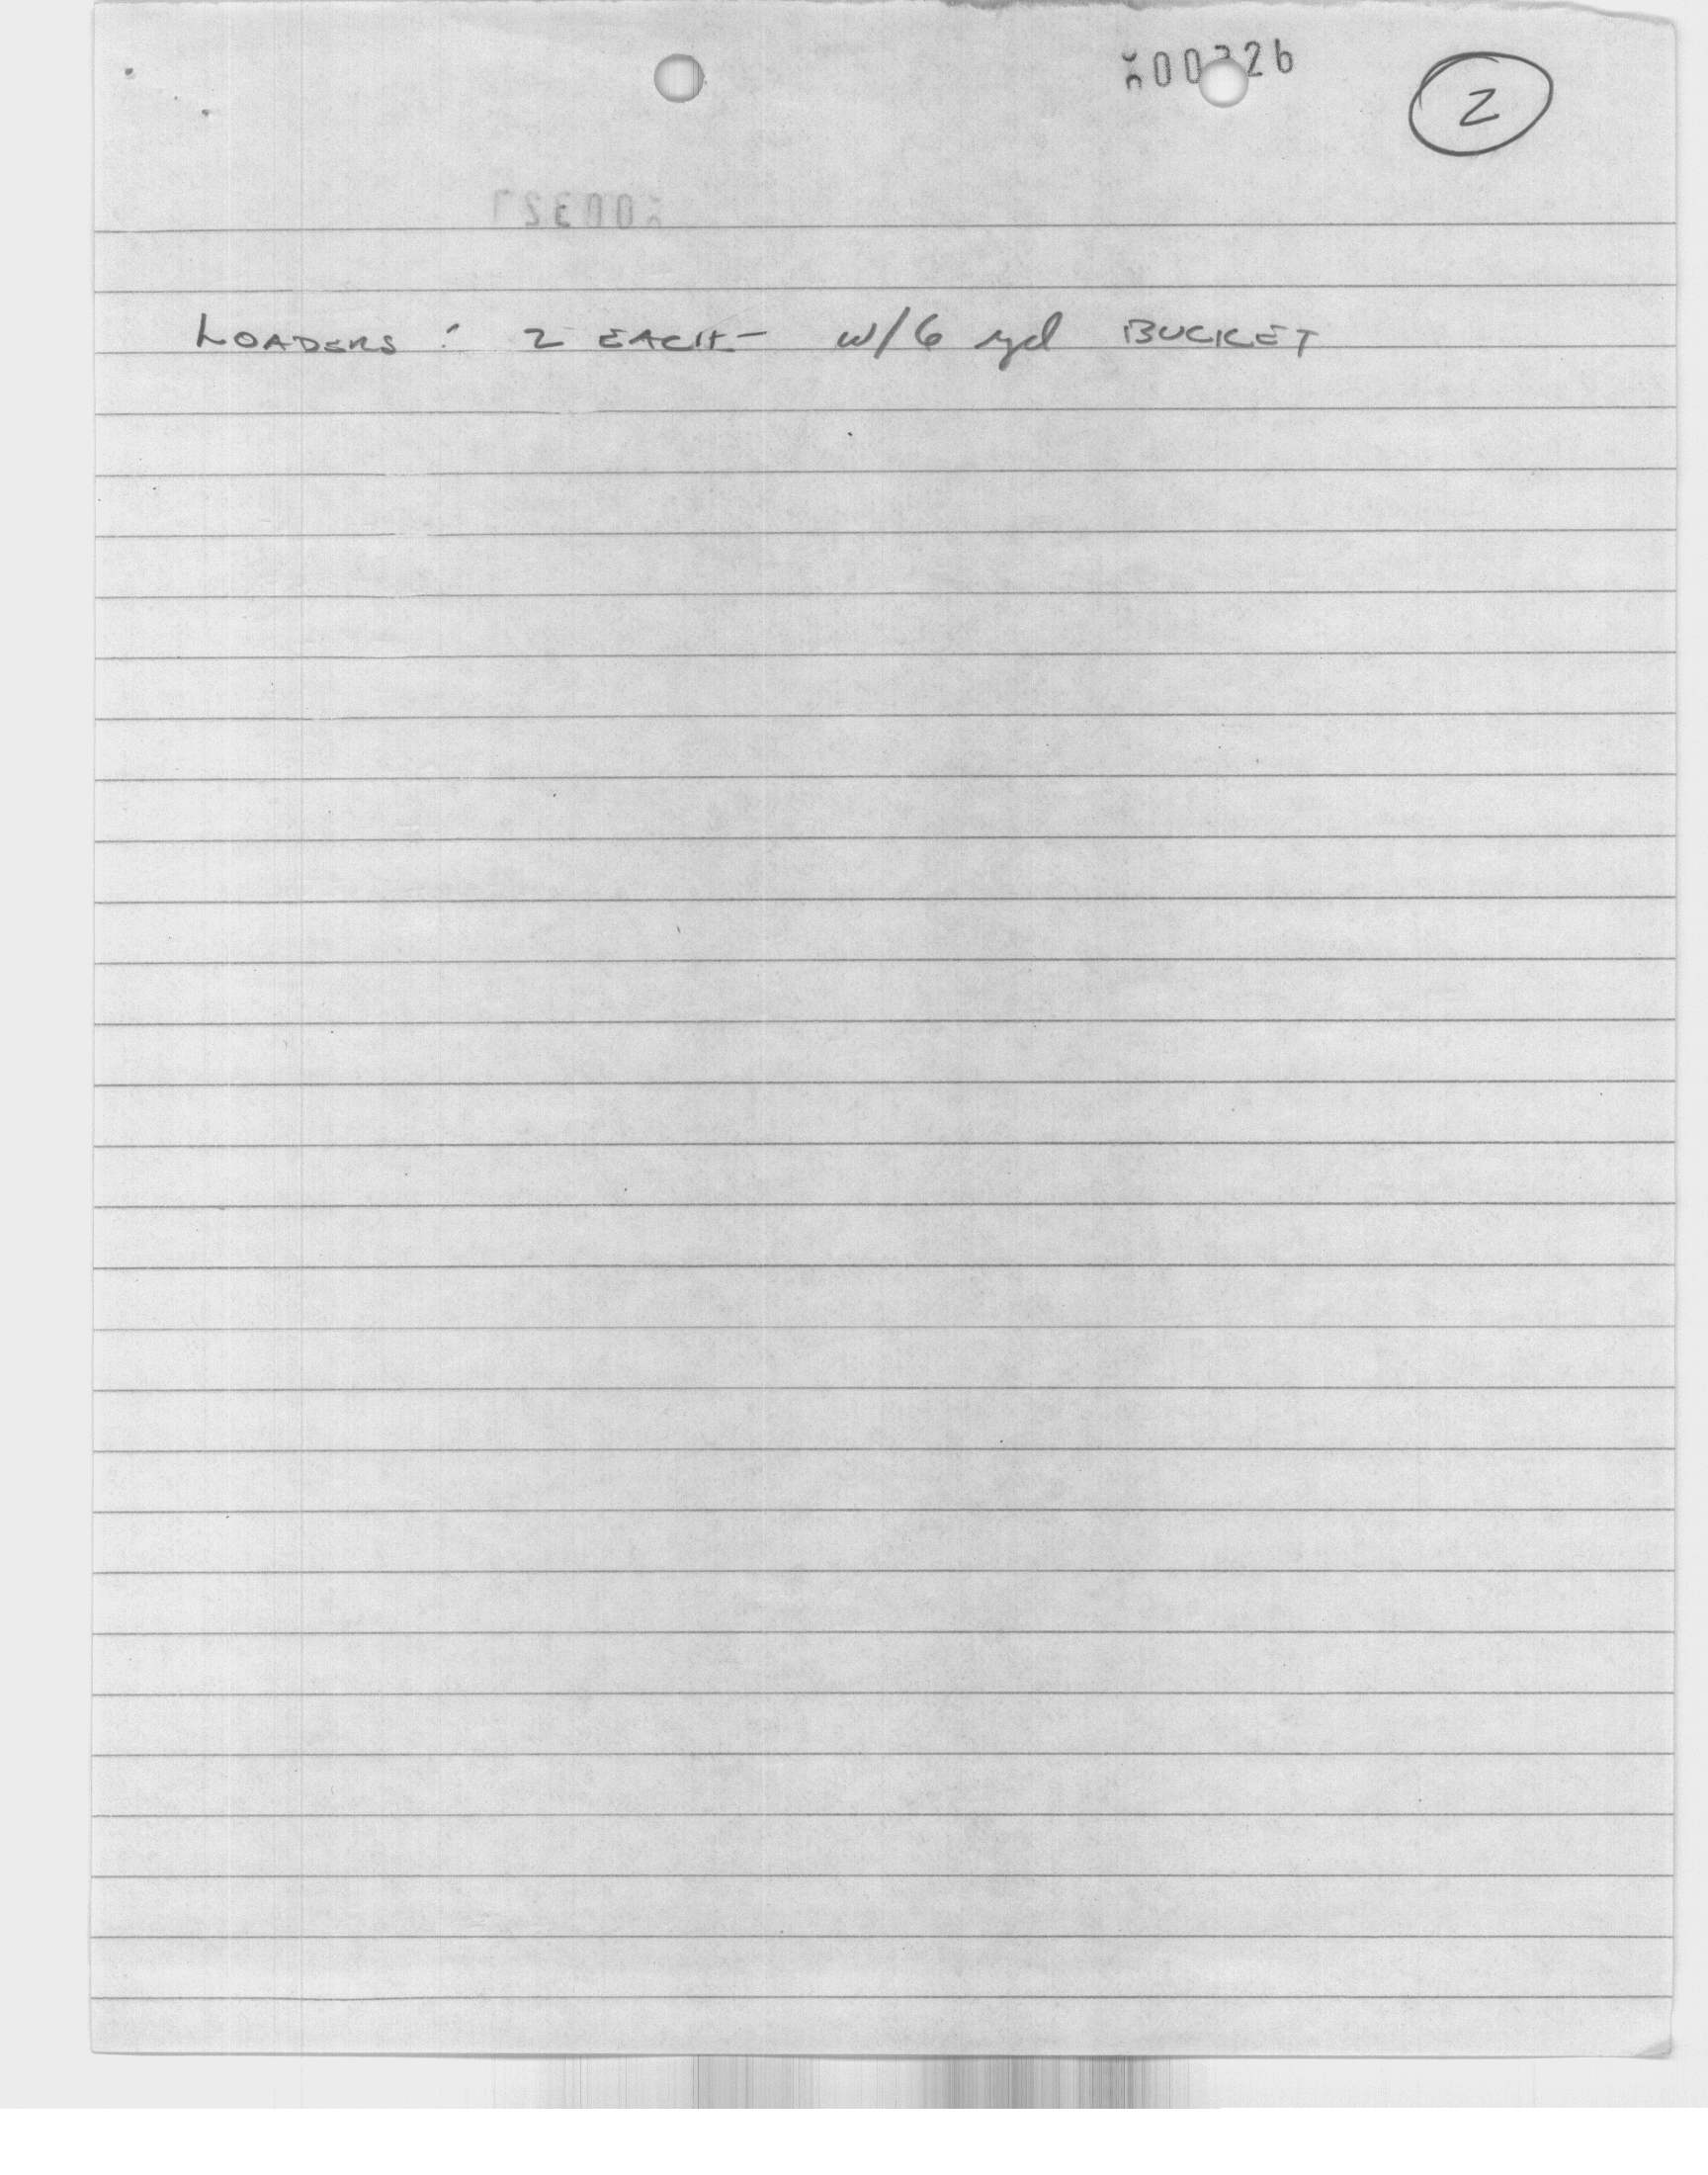 00326
2
LOADERS : 2 EACH - w/6 yd BUCKET